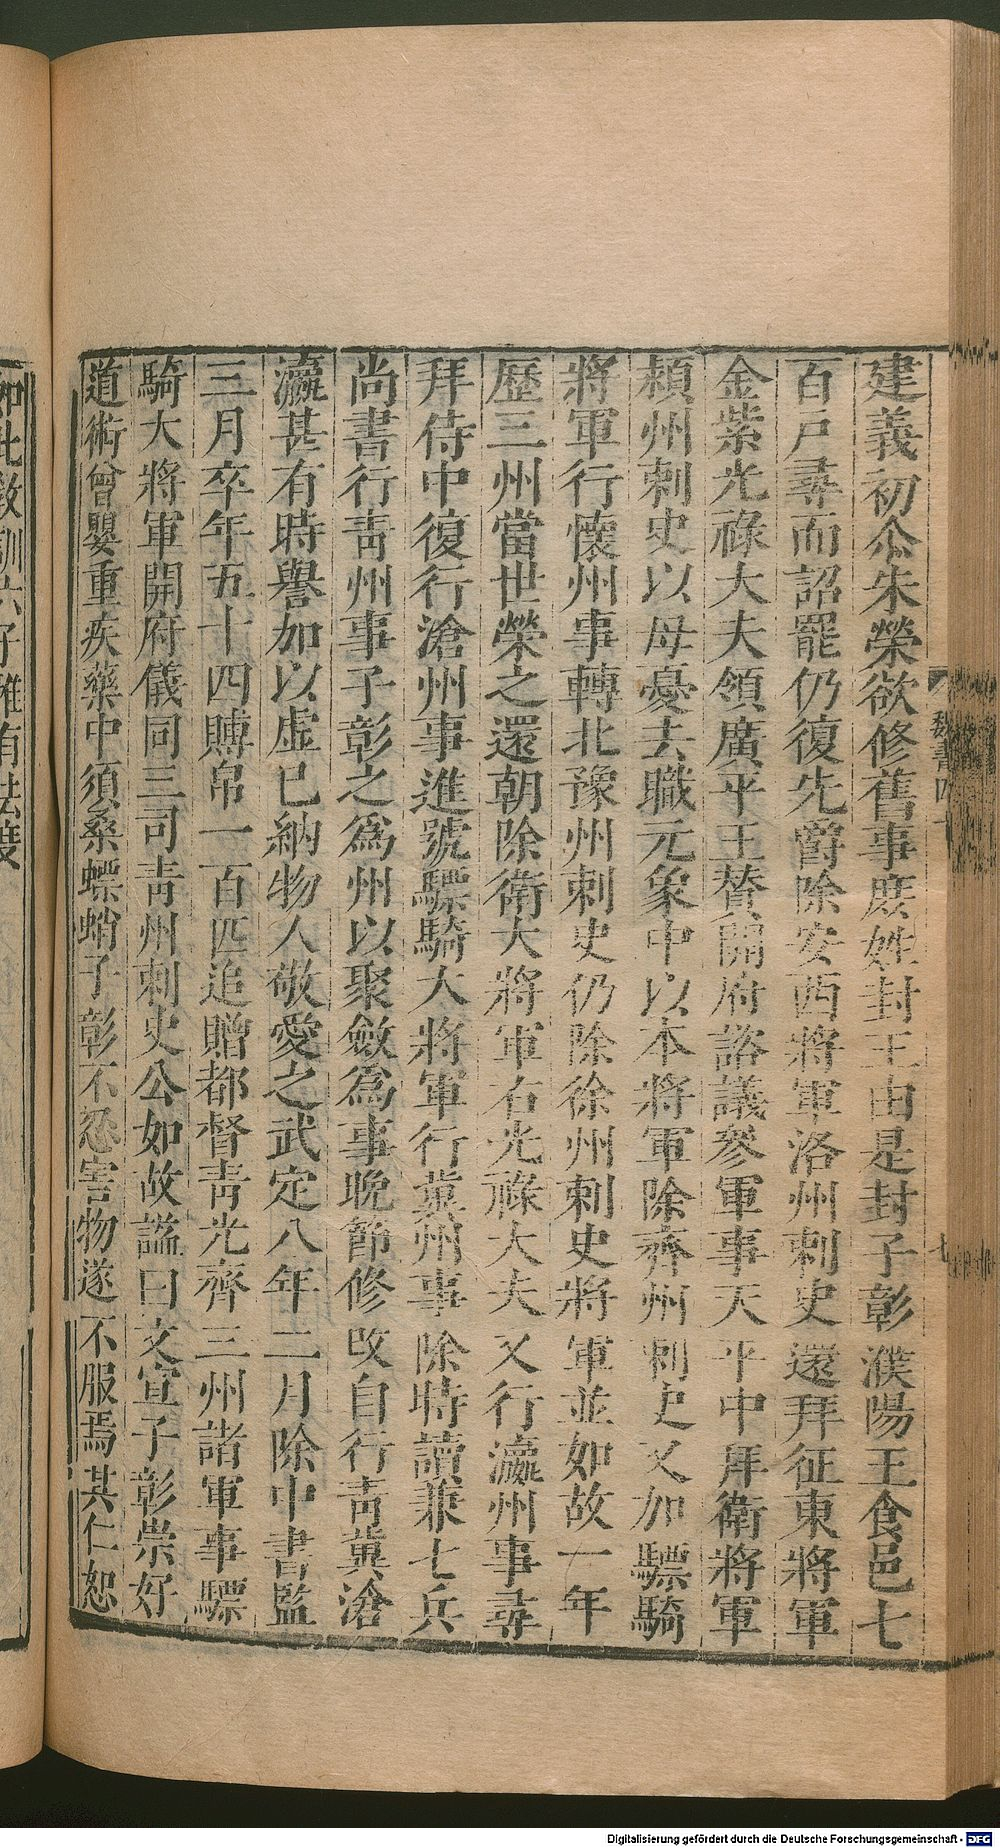 建義初尒朱榮欲修舊事庶姓封王由是封子彰濮陽王食邑七
百戸尋而詔罷仍復先爵除安西將軍洛州刺史還拜征東將軍
金紫光祿大夫領廣平王贊開府諮議參軍事天平中拜衛將軍
潁州刺史以母憂去職元象中以本將軍除齊州刺史又加驃騎
將軍行懷州事轉北豫州刺史仍除徐州刺史將軍並如故一年
歷三州當世榮之還朝除衛大將軍右光祿大夫又行瀛州事尋
拜侍中復行滄州事進號驃騎大將軍行冀州事除侍讀兼七兵
尚書行靑州事子彰之爲州以聚斂爲事晚節修改自行靑冀滄
瀛甚有時譽加以虛已納物人敬愛之武定八年二月除中書監
三月卒年五十四賻帛一百匹追贈都督靑光齊三州諸軍事驃
騎大將軍開府儀同三司靑州刺史公如故謚曰文宣子彰崇好
道術曾嬰重疾藥中須桑螵蛸子彰不忍害物遂不服焉其仁恕
魏書四
七
如此教訓六子雅有法度
Digitalisierung gefördert durch die Deutsche Forschungsgemeinschaft - DFG